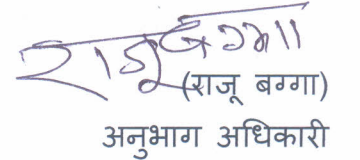 राजू बग्गा
(राजू बग्गा)
अनुभाग अधिकारी